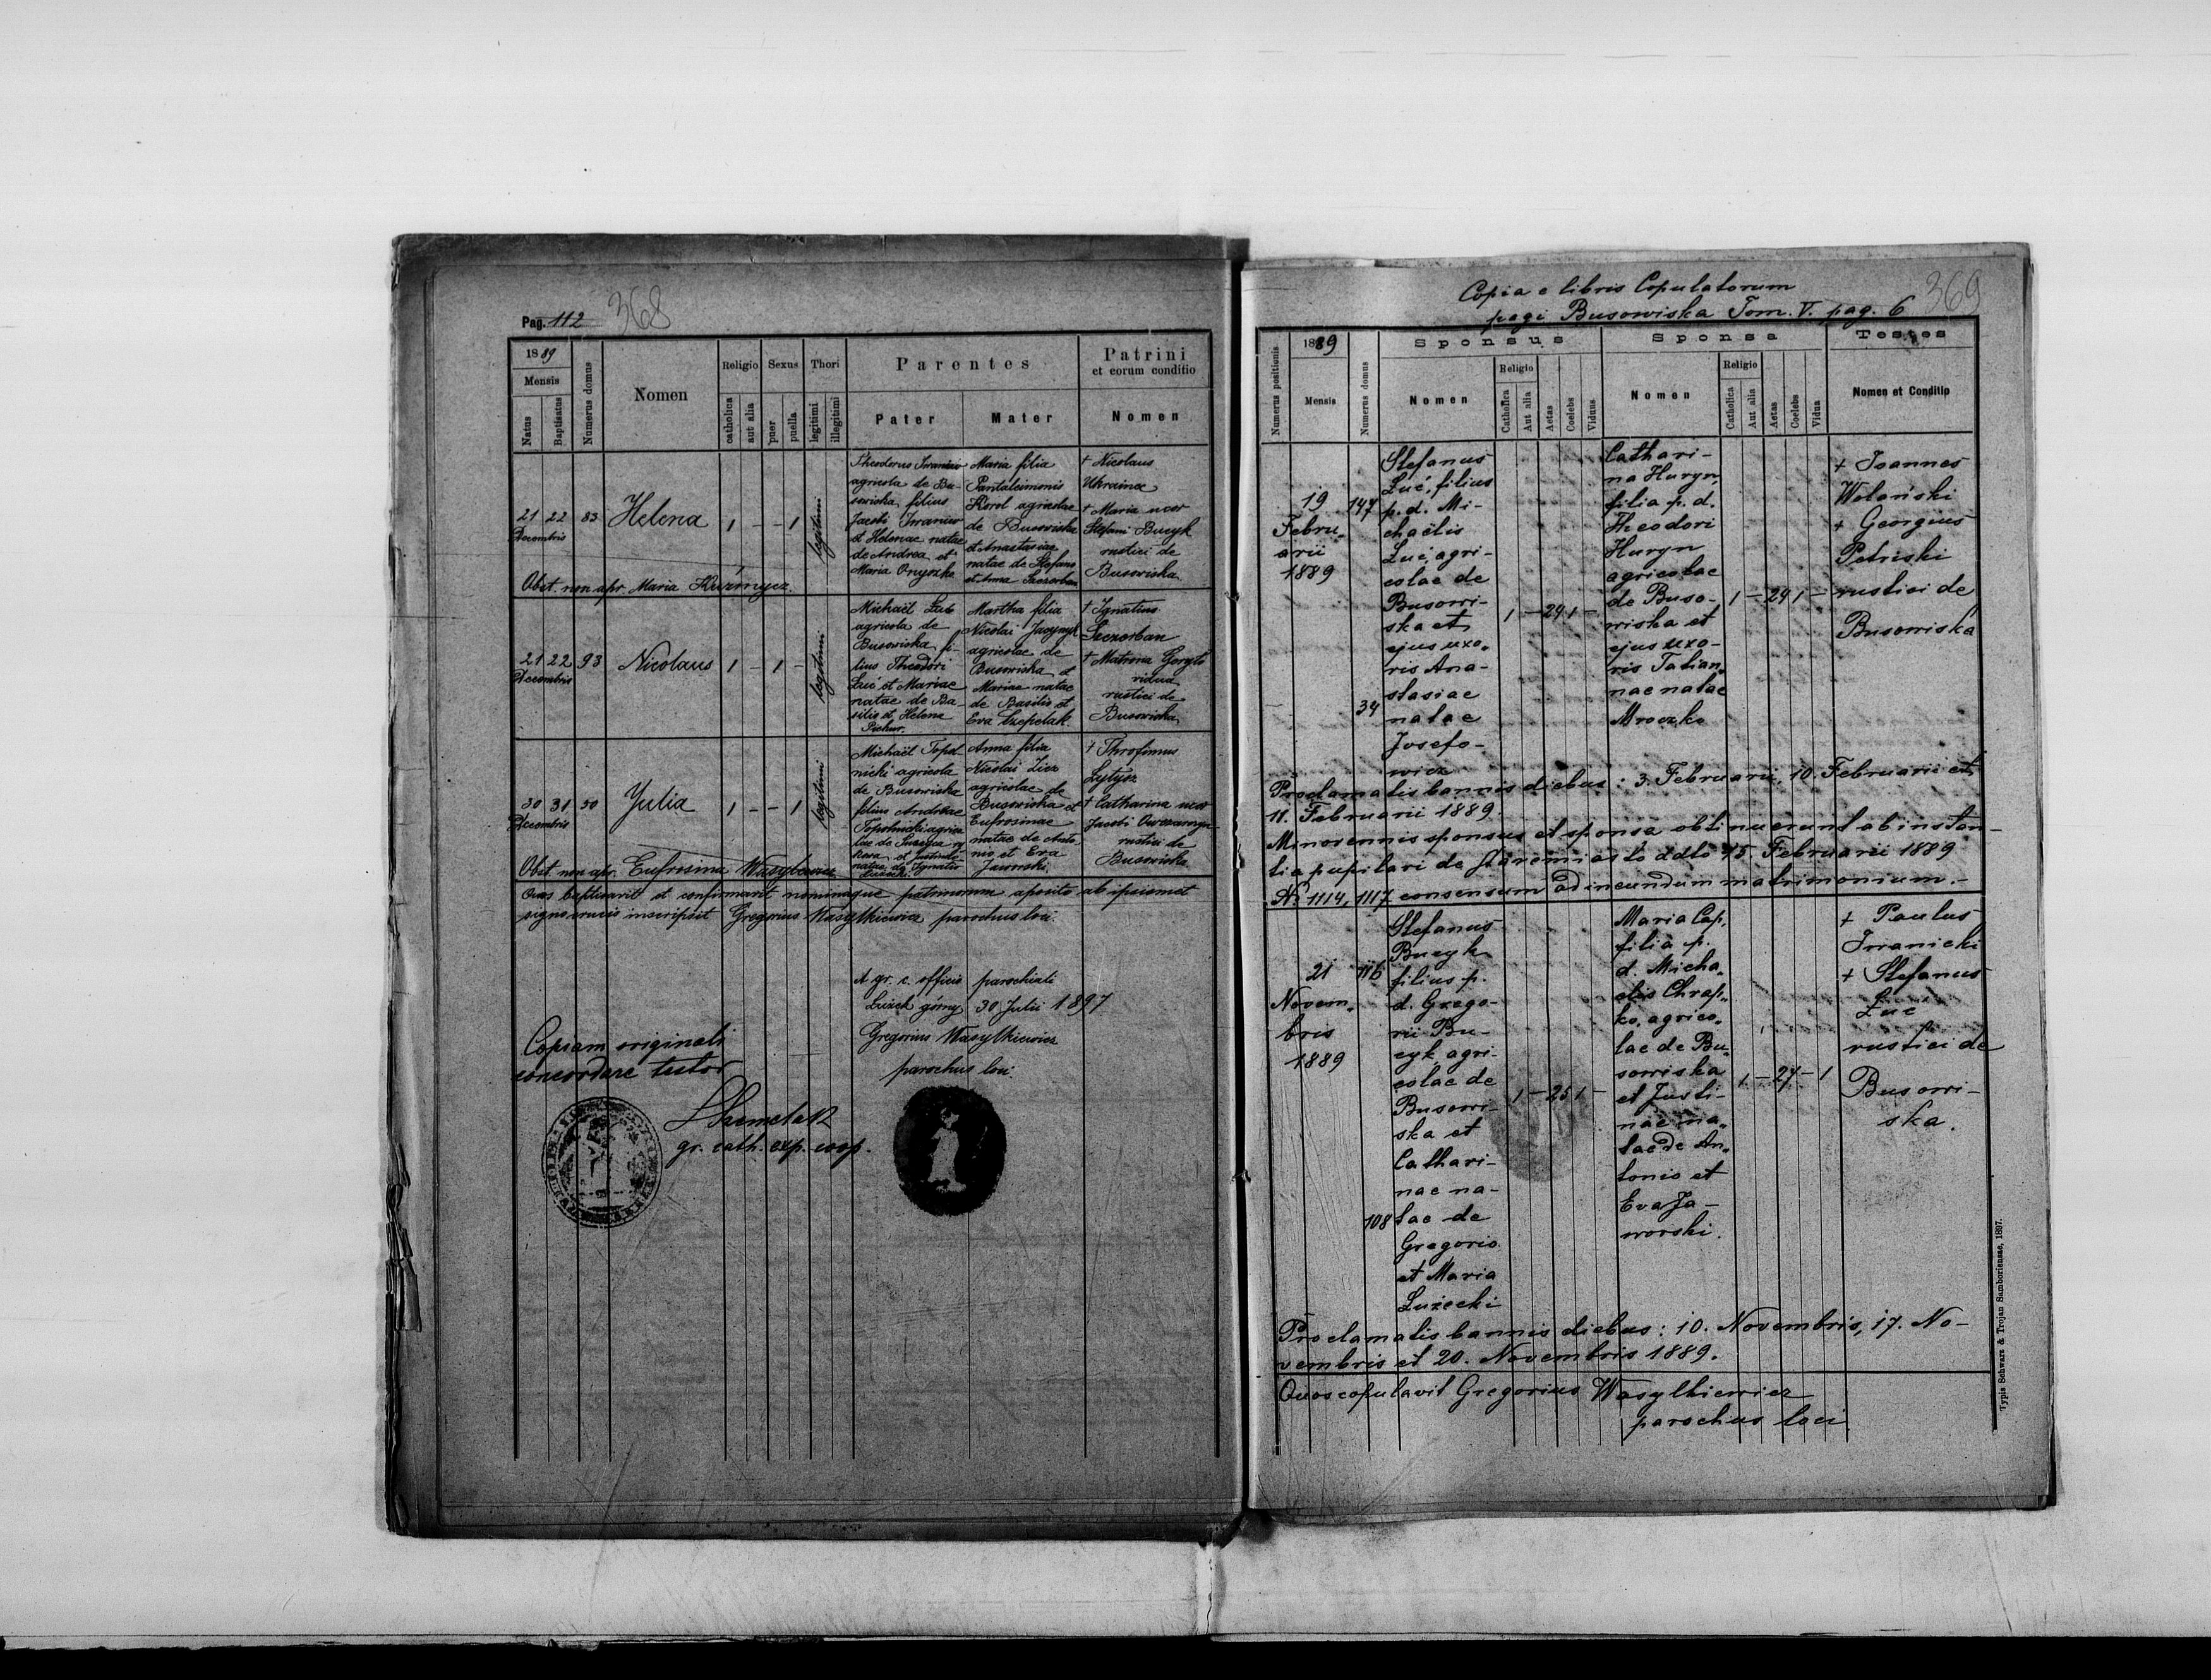 Pag. 112 368
1889
Mensis
Natus
Baptisatus
Numerus domus
Nomen
Religio
catholica
aut alia
Sexus
puer
puella
Thori
legitimi
illegitimi
Parentes
Pater
Mater
Patrini
et eorum conditio
Nomen
21 22 83 Helena 1 - - 1 legitimi
Decembris
Theodorus Iwanicio
agricola de Bu-
sowiska, filius
Jacobi Iwanicw
et Helenae natae
de Andrea et
Maria Onyszko
Maria filia
Pantaleimonis
Korol agricolae
de Busowiska
et Anastasiae
natae de Stefano
et Anna Szczerban
† Nicolaus
Ukrainec
† Maria uxor
Stefani Bucyk
rustici de
Busowiska
Obst. non apr. Maria Kuźmycz.
21 22 93 Nicolaus 1 - 1 - legitimi
Decembris
Michaël Luć
agricola de
Busowiska fi-
lius Theodori
Luć et Mariae
natae de Ba-
silio et Helena
Pichur.
Martha filia
Nicolai
agricolae de
Busowiska et
Mariae natae
de Basilio et
Eva Szepelak.
† Ignatius
Szczerban
† Matrona
vidua
rustici de
Busowiska
30 31 50 Julia 1 - - 1 legitimi
Decembris
Michaël Topol
nicki agricola
de Busowiska
filius Andreae
Topolnicki agrico
lae de
et
natae de Ignatio
Anna filia
Nicolai
agricolae de
Busowiska et
Eufrosinae
natae de Anto
nio et Eva
Jaworski.
† Throfimus
Lytycz
† Catharina uxor
Jacobi
rustici de
Busowiska
Obst. non apr. Eufrosina
Quos baptisavit et confirmavit nominaque patrinorum aposito ab ipsismet
signo crucis inscripsit Gregorius Wasylkiewicz parochus loci.
A gr. c. officio parochiali
Łużek górny 30 Julii 1897
Gregorius Wasylkiewicz
parochus loci.
Copiam originali
concordare testor
gr. cath. exp. coop.
Copia e libris Copulatorum
pagi Busowiska Tom. V. pag. 6 369
Numerus positionis
1889
Mensis
Numerus domus
Sponsus
Nomen
Religio
Catholica
Aut alia
Aetas
Coelebs
Viduus
Sponsa
Nomen
Religio
Catholica
Aut alia
Aetas
Coelebs
Vidua
Testes
Nomen et Conditio
19
Febru-
arii
1889
147
34
Stefanus
Luć, filius
p. d. Mi-
chaëlis
Luć, agri-
colae de
Busowi-
ska et
ejus uxo-
ris Ana-
stasiae
natae
Josefo-
wicz
1 - 24 1 -
Cathari-
na Huryn
filia p. d.
Theodori
Huryn
agricolae
de Buso-
wiska et
ejus uxo-
ris Tatian-
nae natae
Mroczko
1 - 24 1 -
† Joannes
Wolański
† Georgius
Petriski
rustici de
Busowiska
Proclamatis bannis diebus: 3. Februarii, 10. Februarii et
11. Februarii 1889.
Minorennis sponsus et sponsa obtinuerunt ab instan-
tia pupilari de Staremiasto ddto 15. Februarii 1889
No 1114, 1117 consensum ad ineundum matrimonium.-
21
Novem-
bris
1889
116
108
Stefanus
Bucyk
filius p.
d. Grego-
rii Bu-
cyk, agri-
colae de
Busowi-
ska et
Cathari-
nae na-
tae de
Gregorio
et Maria
Łużecki
1 - 25 1 -
Maria Cap,
filia p.
d. Micha-
elis Chrap-
ko, agrico-
lae de Bu-
sowiska
et Justi-
nae na-
tae de An-
tonio et
Eva Ja-
worski.
1 - 27 - 1
† Paulus
Iwanicki
† Stefanus
Luć
rustici de
Busowi-
ska.
Proclamatis bannis diebus: 10. Novembris, 17. No-
vembris et 20. Novembris 1889.
Quos copulavit Gregorius Wasylkiewicz
parochus loci
Typis Schwarz & Trojan Samboriensae, 1897.